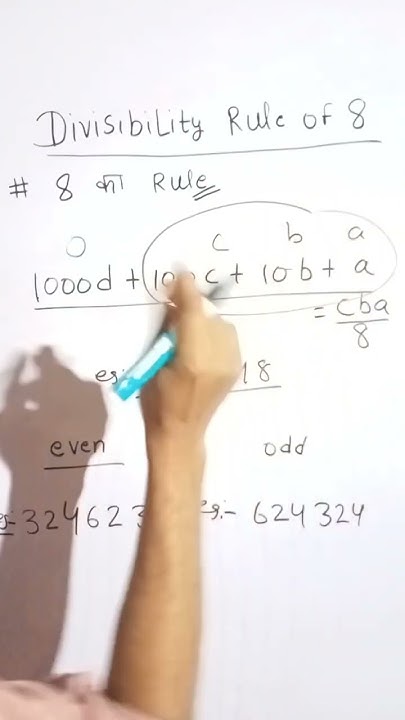 Divisibility Rule of 8
# 8 का Rule
0 c b a
1000d + 100c + 10b + a
= cba
8
18
even odd
324623 eg:- 624324